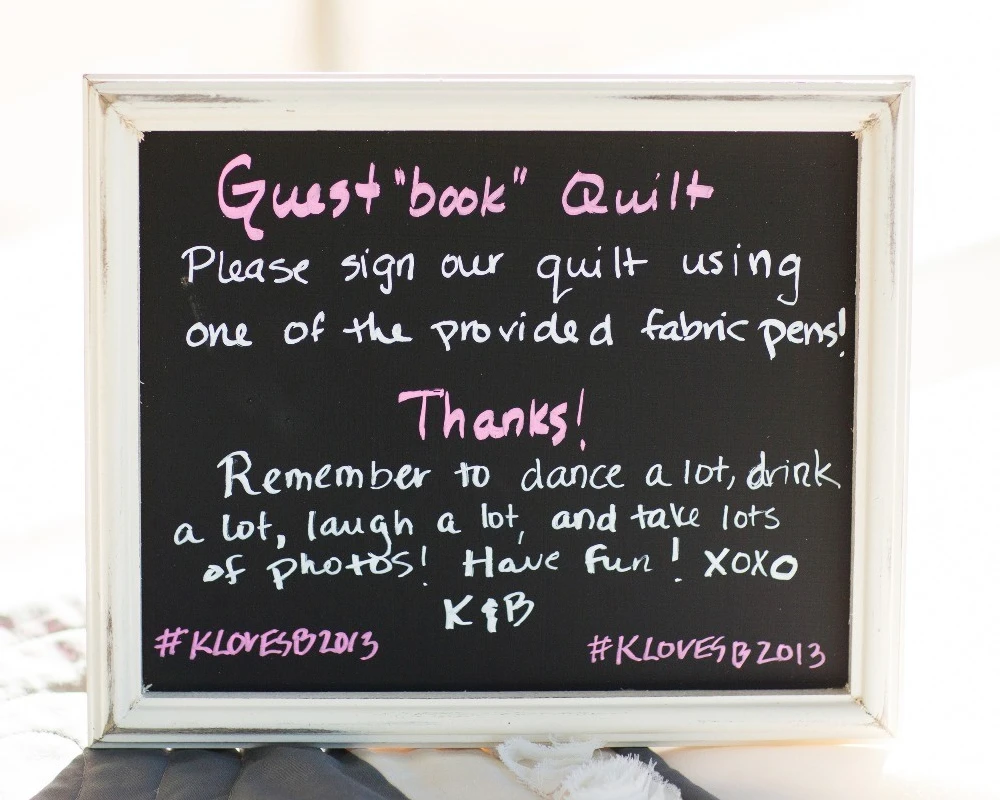 Guest "book" Quilt
Please sign our quilt using
one of the provided fabric pens!
Thanks!
Remember to dance a lot, drink
a lot, laugh a lot, and take lots
of photos! Have fun! XOXO
K & B
#KLOVESB2013 #KLOVESB2013